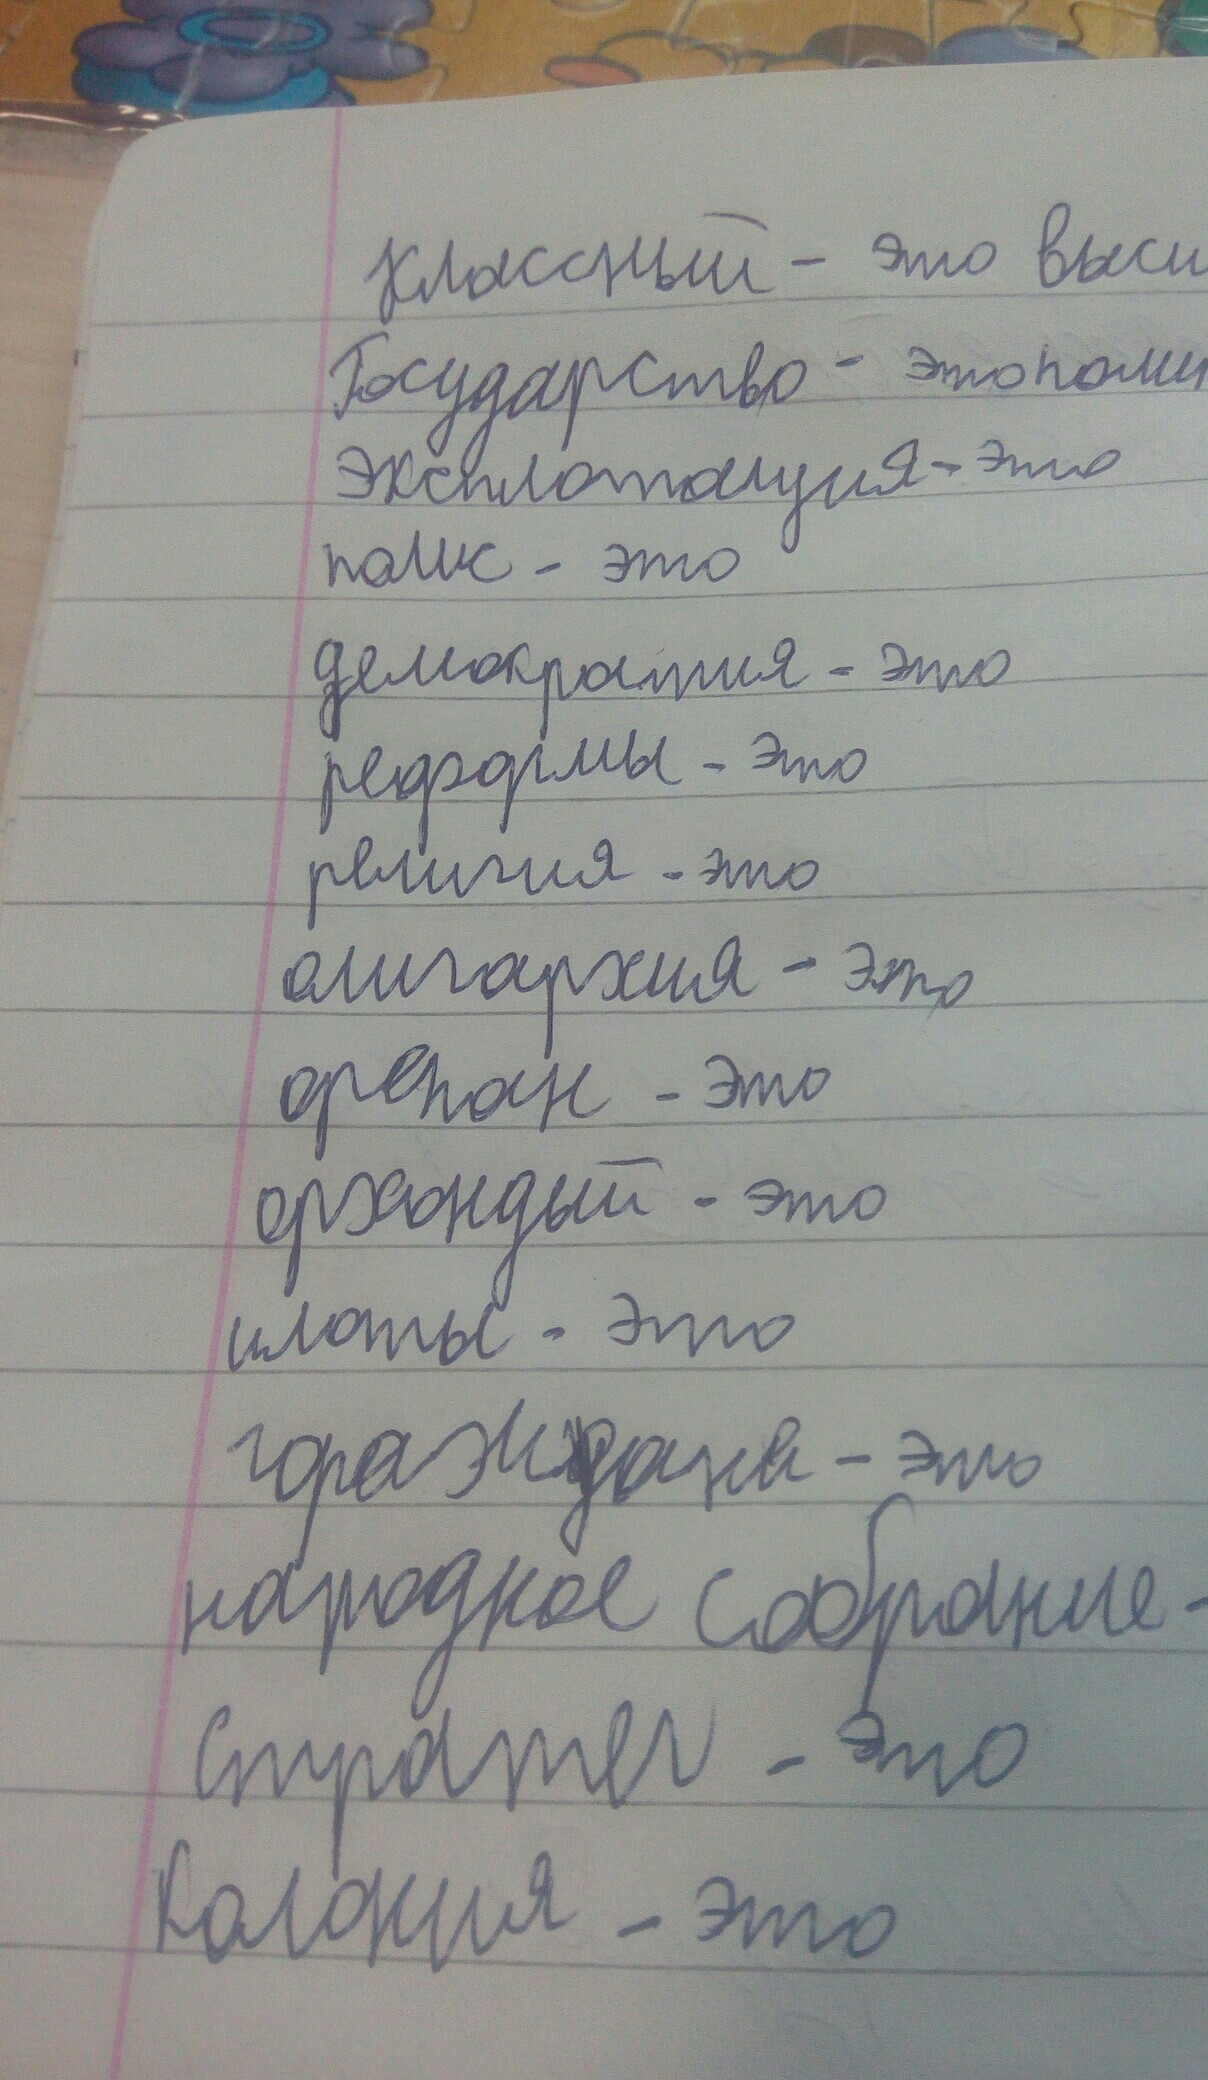 Классный - это высш
Государство - это поли
Эксплотация - это
полис - это
демократия - это
реформы - это
религия - это
олигархия - это
- это
- это
илоты - это
горождане - это
народное собрание -
стратег - это
Колония - это